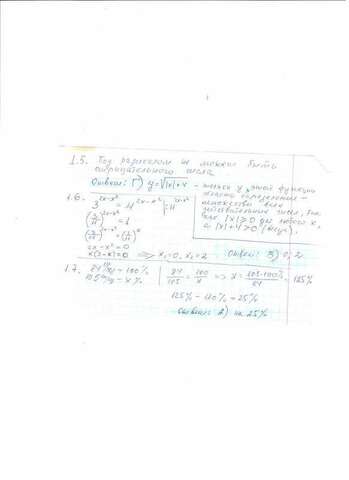 1.5. Под радикалом не может быть
отрицательного числа
Ответ: Г) y=√|x|+4 - только у этой функции
область определения -
множество всех
действительных чисел, так
как |x|≥0 для любого x,
а |x|+4>0
1.6. 3^(2x-x²) = 4^(2x-x²) | :4^(2x-x²)
(3/4)^(2x-x²) = 1
(3/4)^(2x-x²) = (3/4)^0
2x-x²=0
x(2-x)=0 ⟹ x₁=0, x₂=2 Ответ: 0; 2
1.7. 84 - 100%
105 - x% | 84/105 = 100/x ⟹ x = 105·100%/84 = 125%
125% - 100% = 25%
Ответ: на 25%